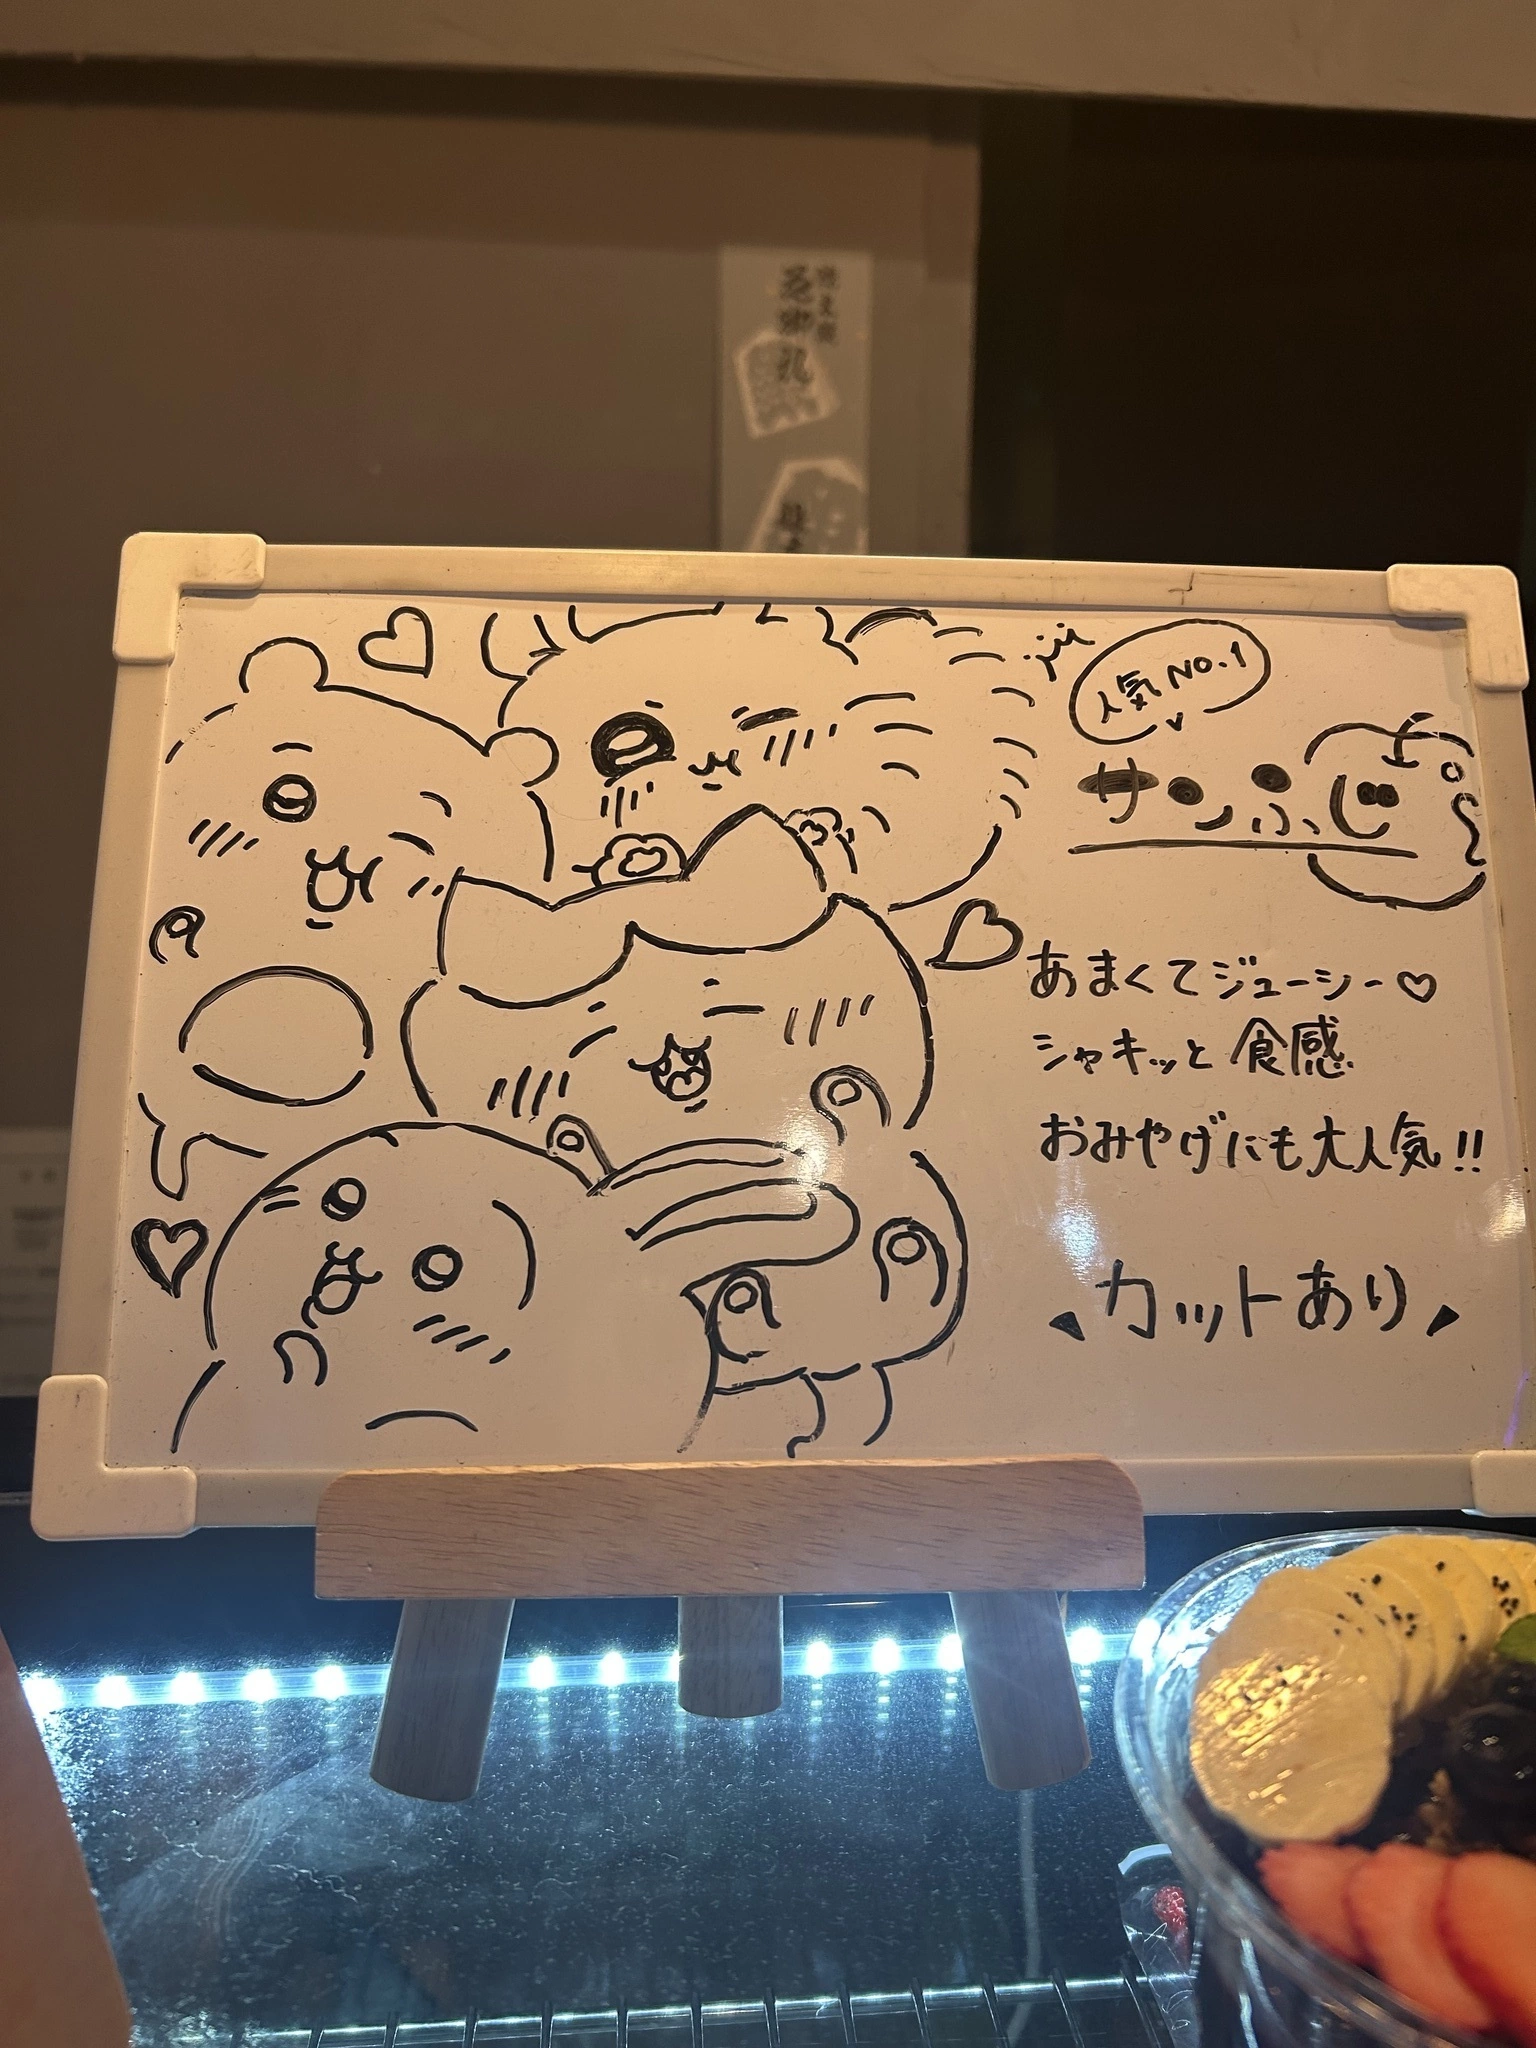 人気NO.1
サンふじ
あまくてジューシー♡
シャキッと食感
おみやげにも大人気!!
カットあり